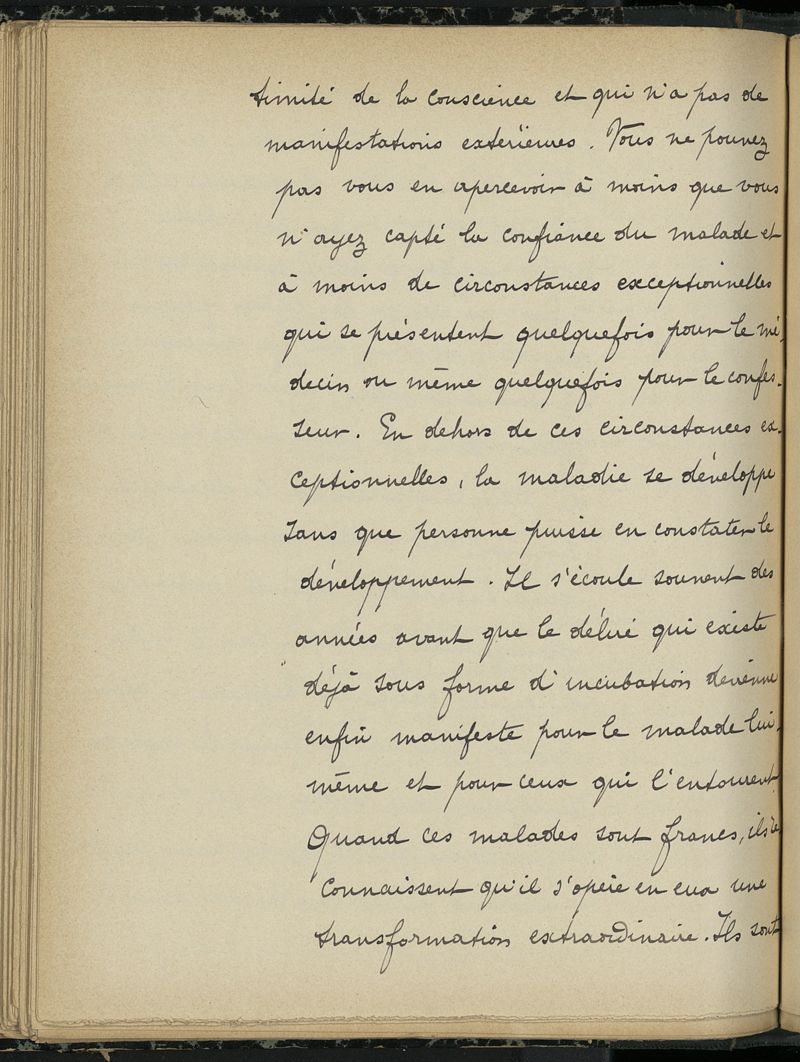 timité de la conscience et qui n'a pas de
manifestations extérieures. Vous ne pouvez
pas vous en apercevoir à moins que vous
n'ayez capté la confiance du malade et
à moins de circonstances exceptionnelles
qui se présentent quelquefois pour le mé-
decin ou même quelquefois pour le confes-
seur. En dehors de ces circonstances ex-
ceptionnelles, la maladie se développe
sans que personne puisse en constater le
développement. Il s'écoule souvent des
années avant que le délire qui existe
déjà sous forme d'incubation devienne
enfin manifeste pour le malade lui-
même et pour ceux qui l'entourent.
Quand ces malades sont francs, ils re
connaissent qu'il s'opère en eux une
transformation extraordinaire. Ils sont